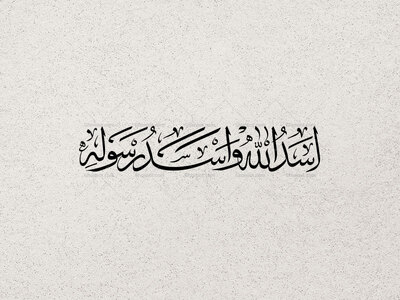 اسدُ اللّٰه وَاسَد رسَولِهِ